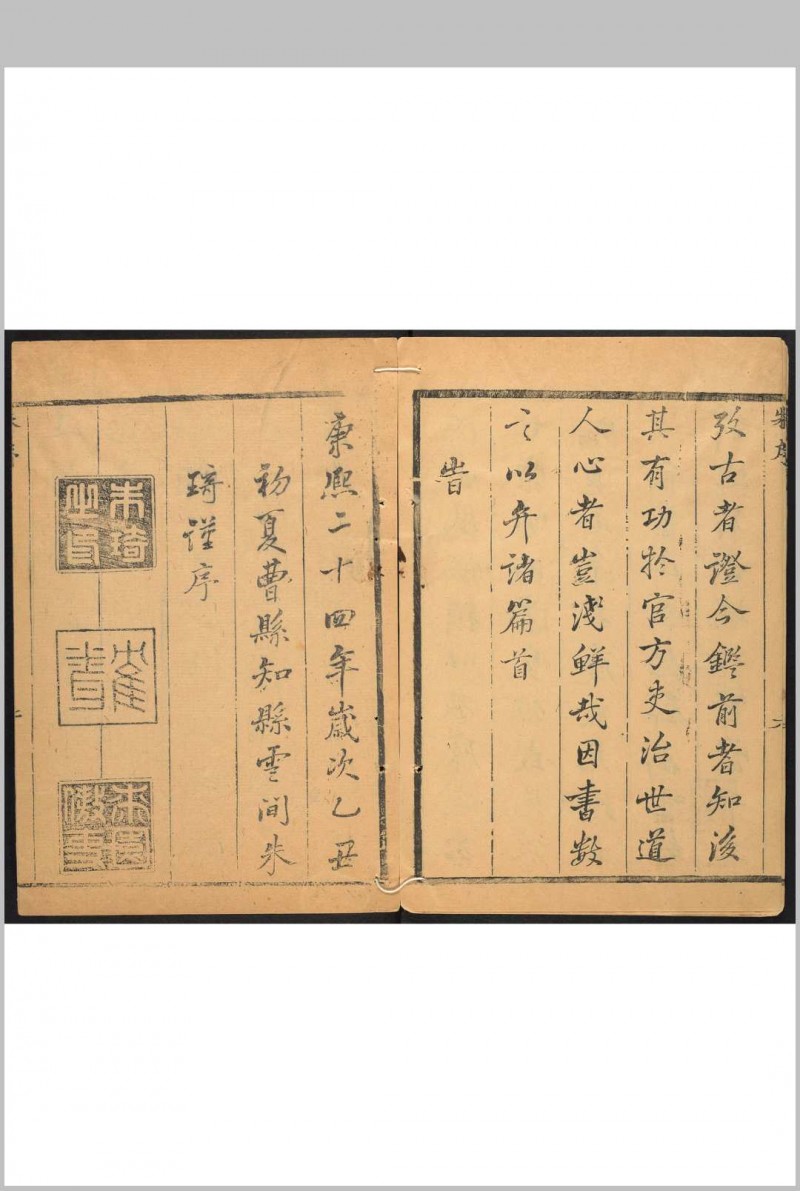 朱序
攷古者證今鑑前者知後
其有功於官方吏治世道
人心者豈淺鮮哉因書數
言以弁諸篇首
旹
康熙二十四年歲次乙丑
初夏曹縣知縣雲間朱
琦謹序
朱琦之印